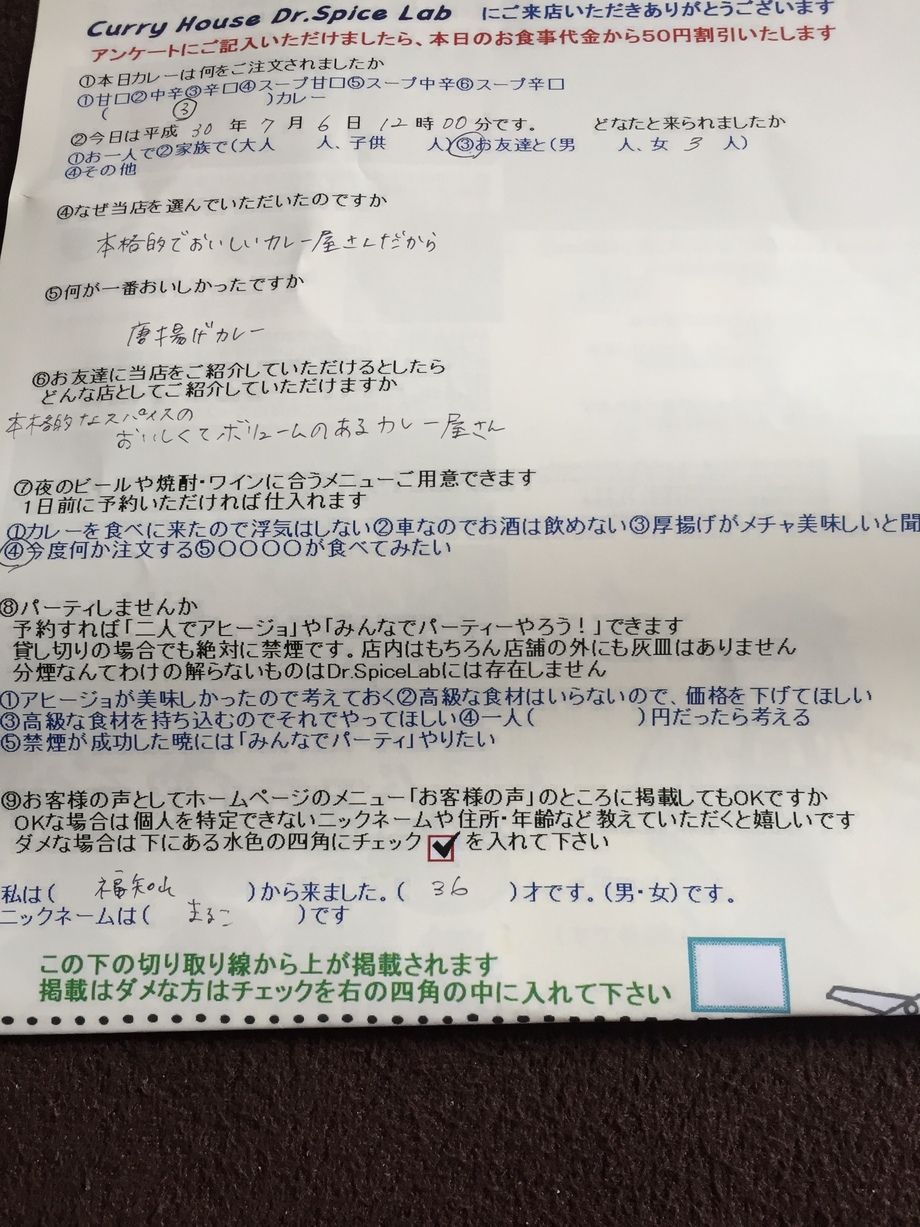 Curry House Dr.Spice Lab にご来店いただきありがとうございます
アンケートにご記入いただけましたら、本日のお食事代金から50円割引いたします
①本日カレーは何をご注文されましたか
①甘口②中辛③辛口④スープ甘口⑤スープ中辛⑥スープ辛口
( ③ )カレー
②今日は平成 30 年 7 月 6 日 12 時 00 分です。 どなたと来られましたか
①お一人で②家族で(大人 人、子供 人)③お友達と(男 人、女 3 人)
④その他
④なぜ当店を選んでいただいたのですか
本格的でおいしいカレー屋さんだから
⑤何が一番おいしかったですか
唐揚げカレー
⑥お友達に当店をご紹介していただけるとしたら
どんな店としてご紹介していただけますか
本格的なスパイスの
おいしくてボリュームのあるカレー屋さん
⑦夜のビールや焼酎・ワインに合うメニューご用意できます
1日前に予約いただければ仕入れます
①カレーを食べに来たので浮気はしない②車なのでお酒は飲めない③厚揚げがメチャ美味しいと聞
④今度何か注文する⑤〇〇〇〇が食べてみたい
⑧パーティしませんか
予約すれば「二人でアヒージョ」や「みんなでパーティーやろう!」できます
貸し切りの場合でも絶対に禁煙です。店内はもちろん店舗の外にも灰皿はありません
分煙なんてわけの解らないものはDr.SpiceLabには存在しません
①アヒージョが美味しかったので考えておく②高級な食材はいらないので、価格を下げてほしい
③高級な食材を持ち込むのでそれでやってほしい④一人( )円だったら考える
⑤禁煙が成功した暁には「みんなでパーティ」やりたい
⑨お客様の声としてホームページのメニュー「お客様の声」のところに掲載してもOKですか
OKな場合は個人を特定できないニックネームや住所・年齢など教えていただくと嬉しいです
ダメな場合は下にある水色の四角にチェック を入れて下さい
私は( 福知山 )から来ました。( 36 )才です。(男・女)です。
ニックネームは( まるこ )です
この下の切り取り線から上が掲載されます
掲載はダメな方はチェックを右の四角の中に入れて下さい